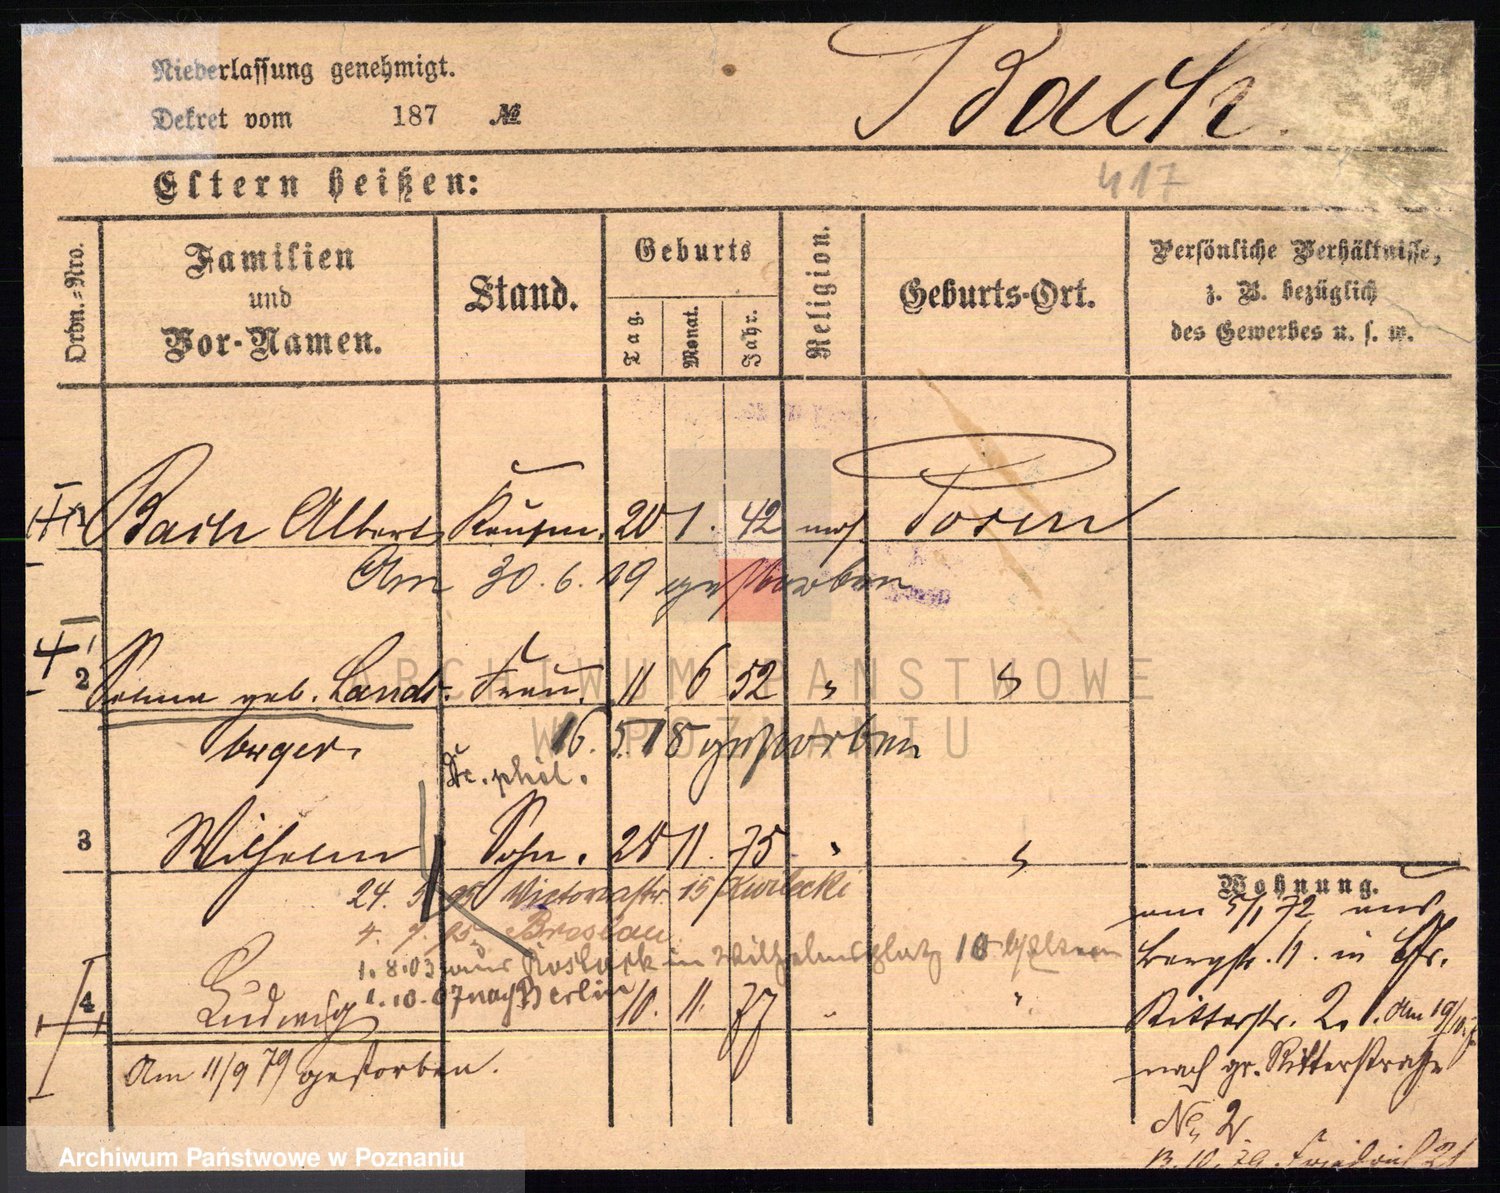 Niederlassung genehmigt.
Dekret vom 187 №
Bach.
417
Eltern heißen:
Ordn.-Nro.
Familien
und
Vor-Namen.
Stand.
Geburts
Tag.
Monat.
Jahr.
Religion.
Geburts-Ort.
Persönliche Verhältnisse,
z. B. bezüglich
des Gewerbes u. s. w.
Bach Albert Kaufm. 20 1. 42 mos. Posen
Am 30. 6. 19 gestorben
2 Selma geb. Lands- Frau. 11 6 52
berger.
16. 5. 18 gestorben
Dr. phil.
3 Wilhelm Sohn. 11. 75
24. 5. 95 Victoriastr. 15 Kurlecki
4. 7. 95 Breslau
1. 8. 03 aus Rostock in Wilhelmsplatz 18 b/Eltern
1. 10. 07 nach Berlin
4 Ludwig 10. 11. 77
Am 11/9 79 gestorben.
Wohnung.
am 5/1 72 aus
Bergstr. 11. in Gr.
Ritterstr. 2. Am 19/10
nach gr. Ritterstraße
No 2.
13. 10. 79. 21
ARCHIWUM PAŃSTWOWE
W POZNANIU
Archiwum Państwowe w Poznaniu